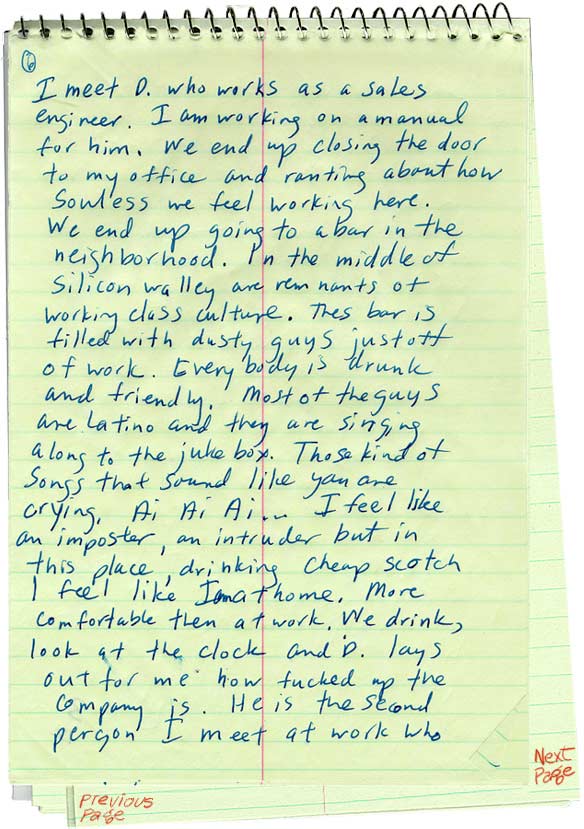 6
I meet D. who works as a sales
engineer. I am working on a manual
for him. We end up closing the door
to my office and ranting about how
Souless we feel working here.
We end up going to a bar in the
neighborhood. In the middle of
Silicon walley are remnants of
working class culture. Thes bar is
filled with dusty guys just off
of work. Every body is drunk
and friendly. Most of the guys
are Latino and they are singing
along to the juke box. Those kind of
Songs that sound like you are
crying. Ai Ai Ai... I feel like
an imposter, an intruder but in
this place, drinking cheap scotch
I feel like I am at home. More
comfortable then at work. We drink,
look at the clock and D. lays
out for me how fucked up the
company is. He is the second
person I meet at work who
Next
Page
Previous
Page